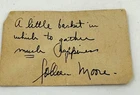 A little basket in
which to gather
much happiness
Colleen Moore.